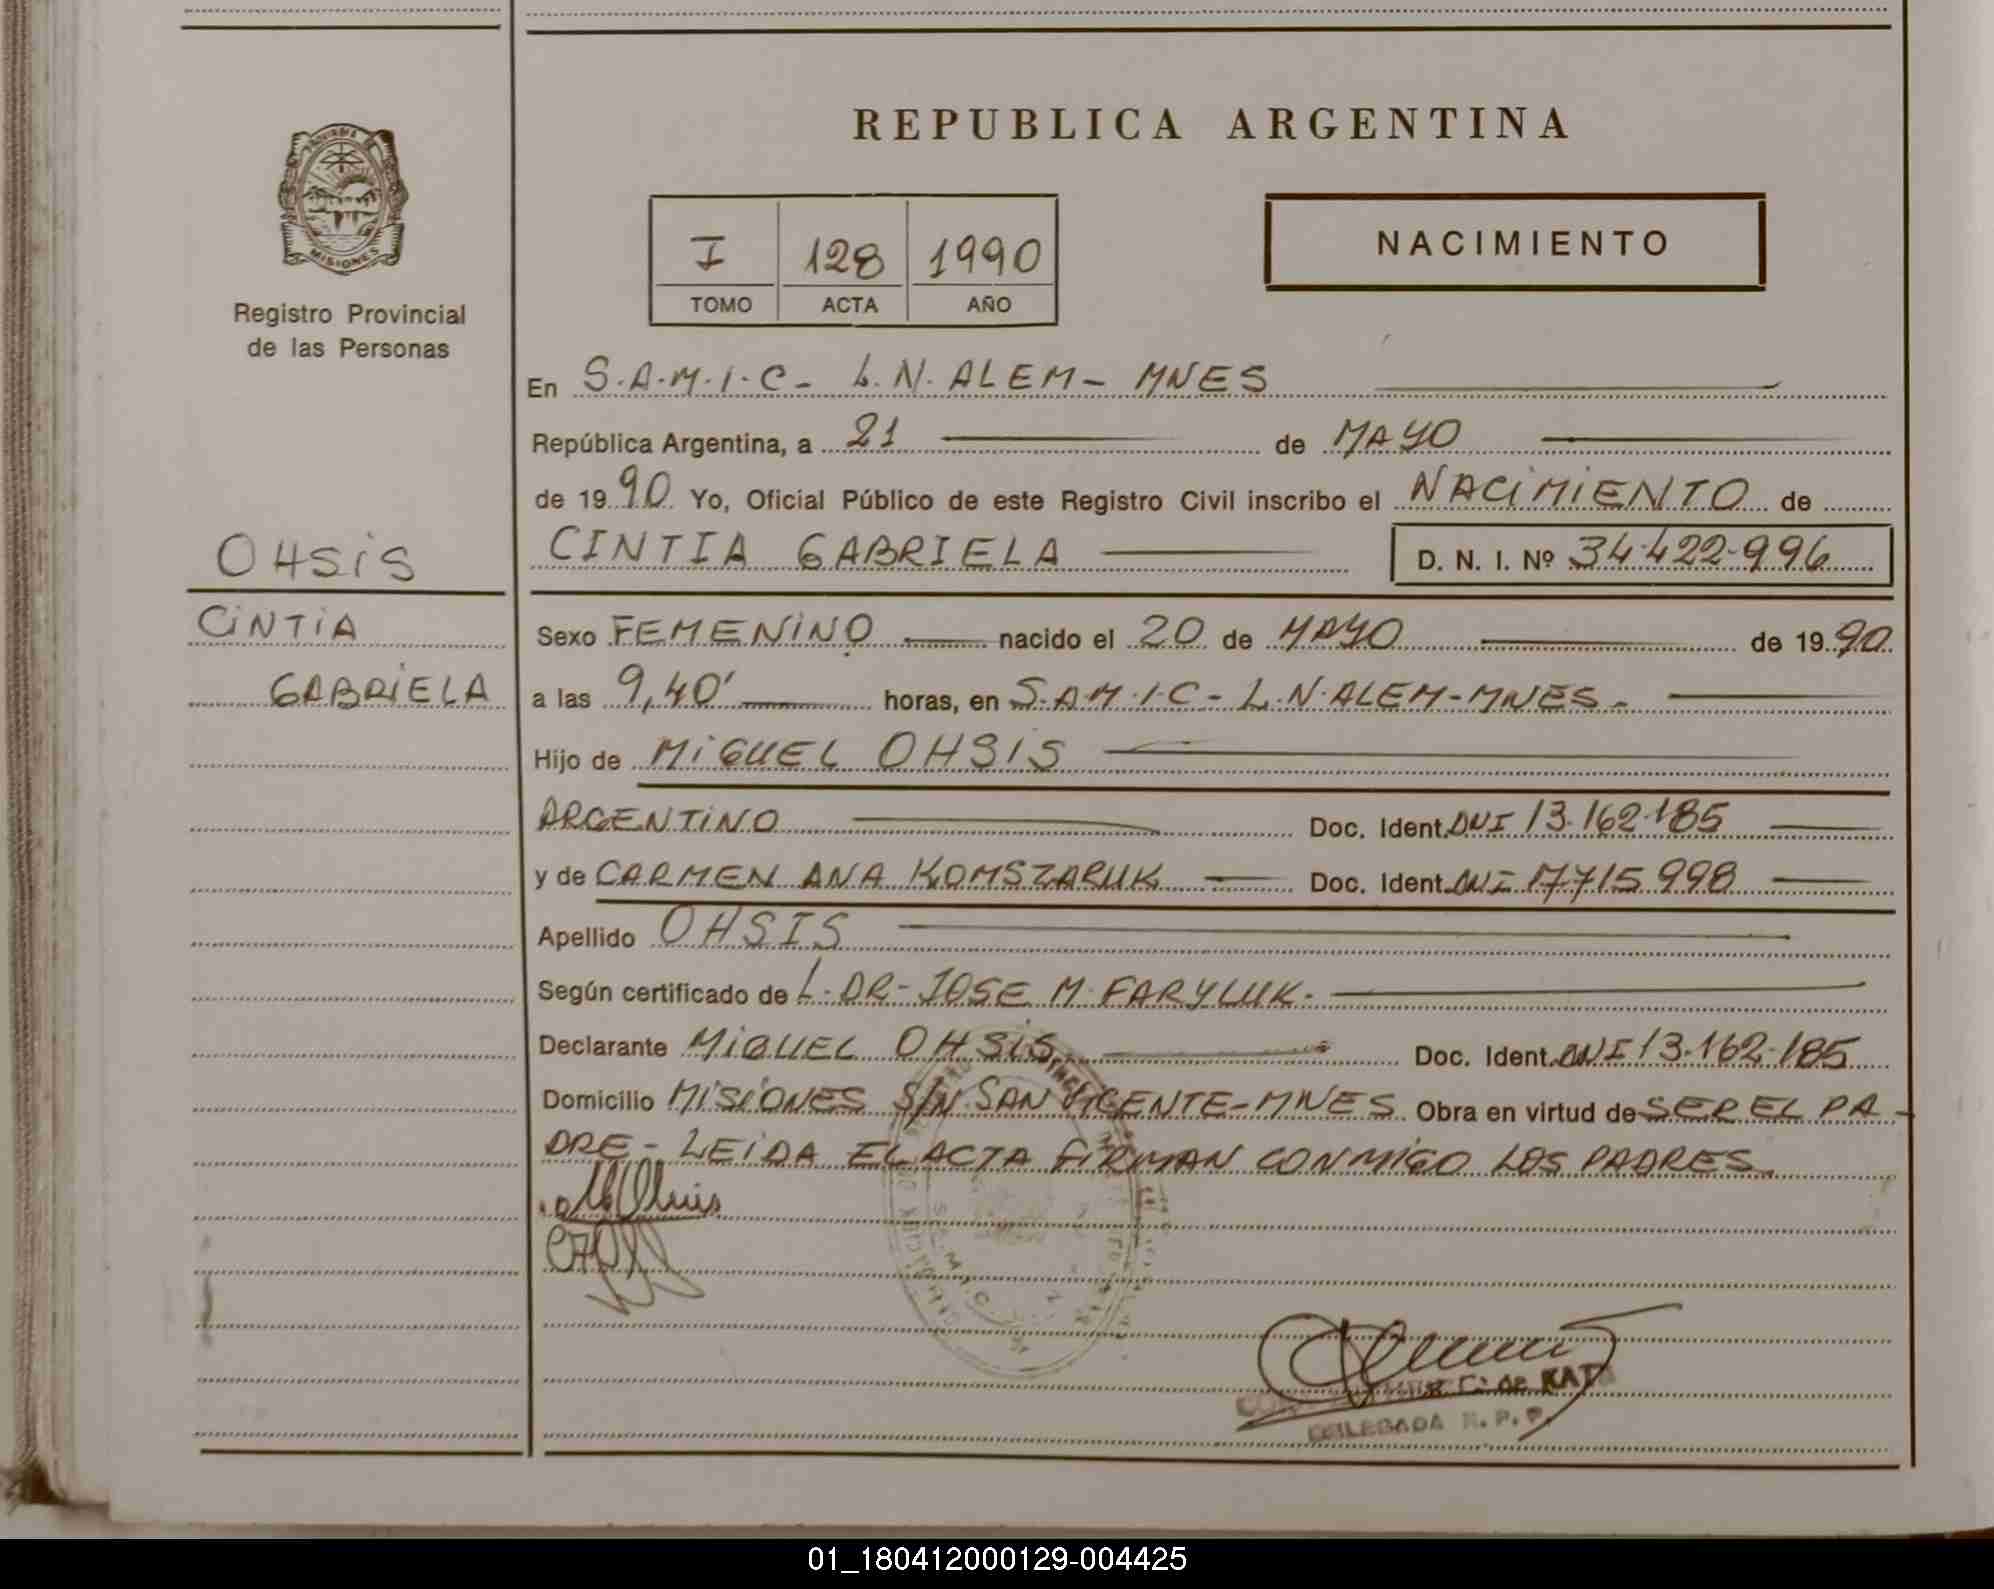 REPUBLICA ARGENTINA
PROVINCIA
MISIONES
Registro Provincial
de las Personas
I 128 1990
TOMO ACTA AÑO
NACIMIENTO
En S.A.M.I.C- L.N. ALEM- MNES
República Argentina, a 21 de MAYO
de 1990. Yo, Oficial Público de este Registro Civil inscribo el NACIMIENTO de
CINTIA GABRIELA D. N. I. Nº 34.422.996
OHSiS
CiNTiA
GABRiELA
Sexo FEMENiNO nacido el 20 de MAYO de 1990.
a las 9,40' horas, en S.A.M.I.C- L.N. ALEM-MNES-
Hijo de MiGUEL OHSiS
ARGENTiNO Doc. Ident. DNI 13.162.185
y de CARMEN ANA KOMSZARUK Doc. Ident. DNI 17.715.998
Apellido OHSIS
Según certificado de L. DR- JOSE M. FARYLUK.
Declarante MiGUEL OHSiS Doc. Ident. DNI 13.162.185
Domicilio MiSiONES S/N SAN VICENTE-MNES Obra en virtud de SER EL PA-
DRE- LEiDA EL ACTA FiRMAN CONMiGO LOS PADRES
S.A.M.I.C.
DELEGADA R. P. P.
01_180412000129-004425